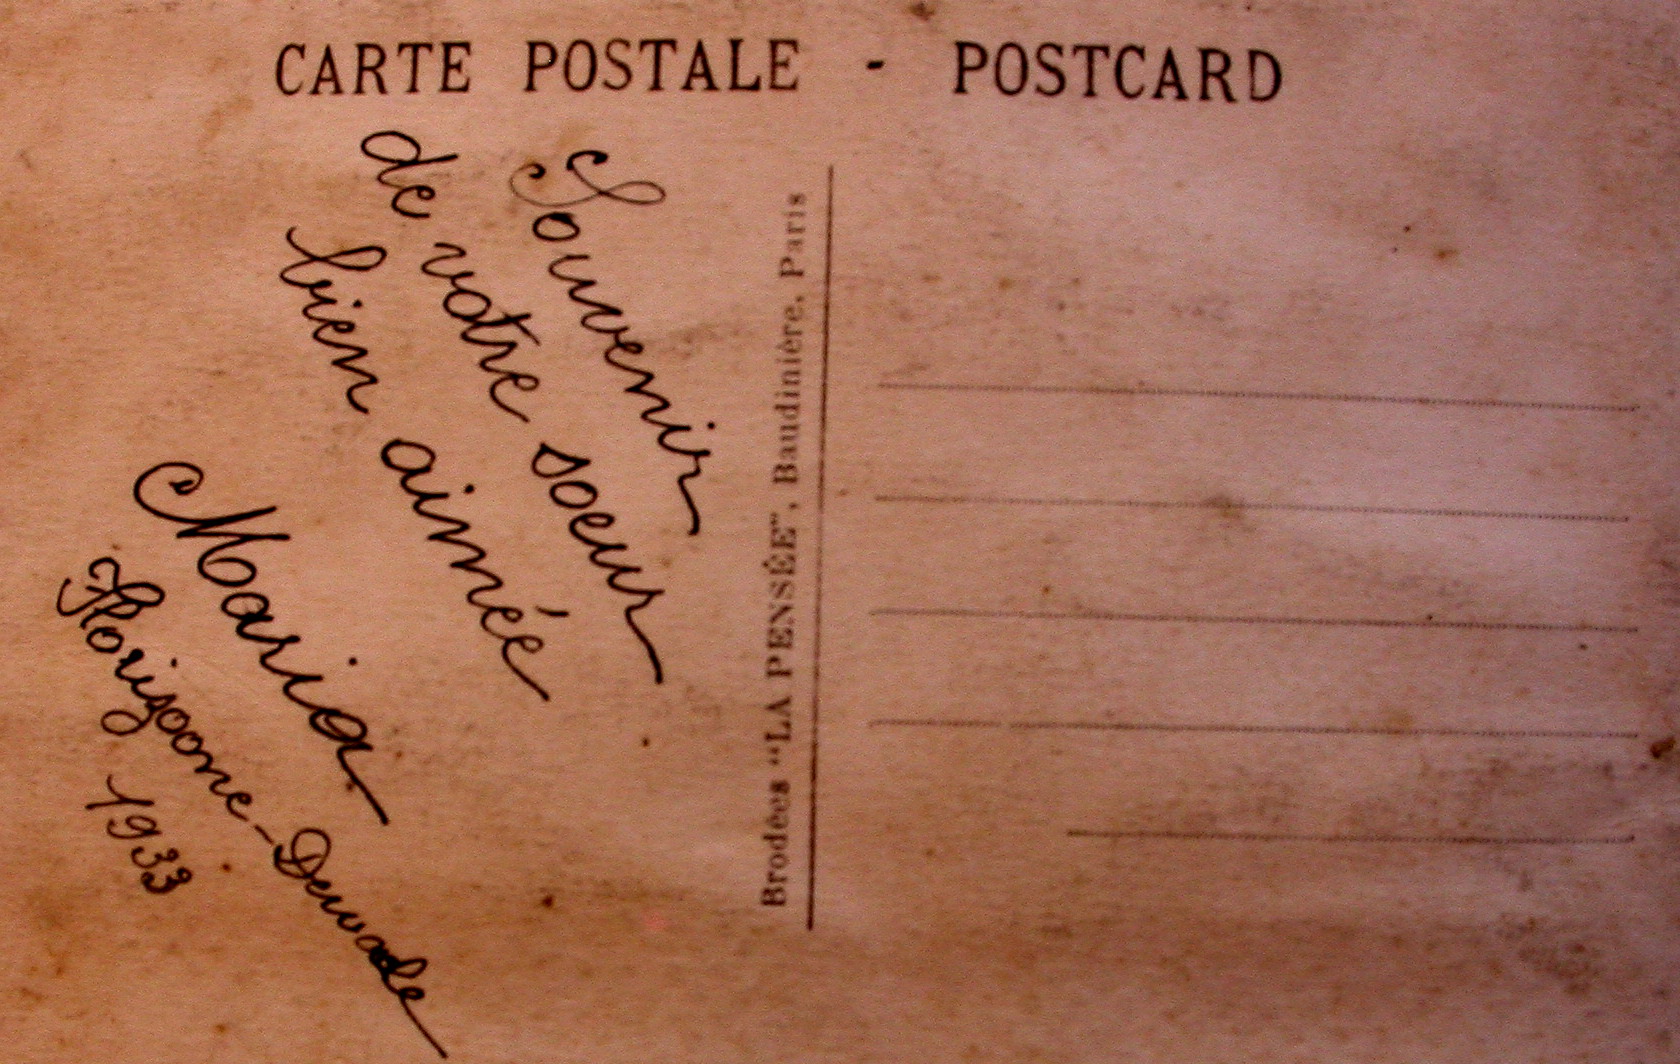 CARTE POSTALE - POSTCARD
Souvenir
de votre soeur
bien aimée
Maria
Florizoone-Dewade
1933
Brodées "LA PENSÉE", Baudinière, Paris